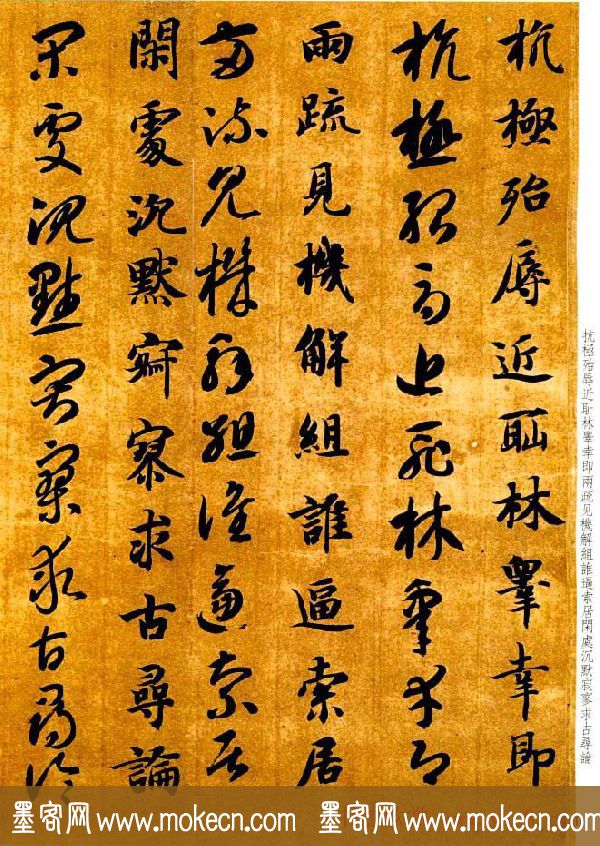 抗極殆辱近耻林睪幸即兩疏见機解組誰逼索居閑處沉默寂寥求古尋論
杭極殆辱近耻林睪幸即
杭極殆辱近耻林睪幸即
兩疏見機解組誰逼索居
兩疏見機解組誰逼索居
閑處沉默寂寥求古尋論
閑處沉默寂寥求古尋論
墨客网 www.mokecn.com 墨客网 www.mokecn.com